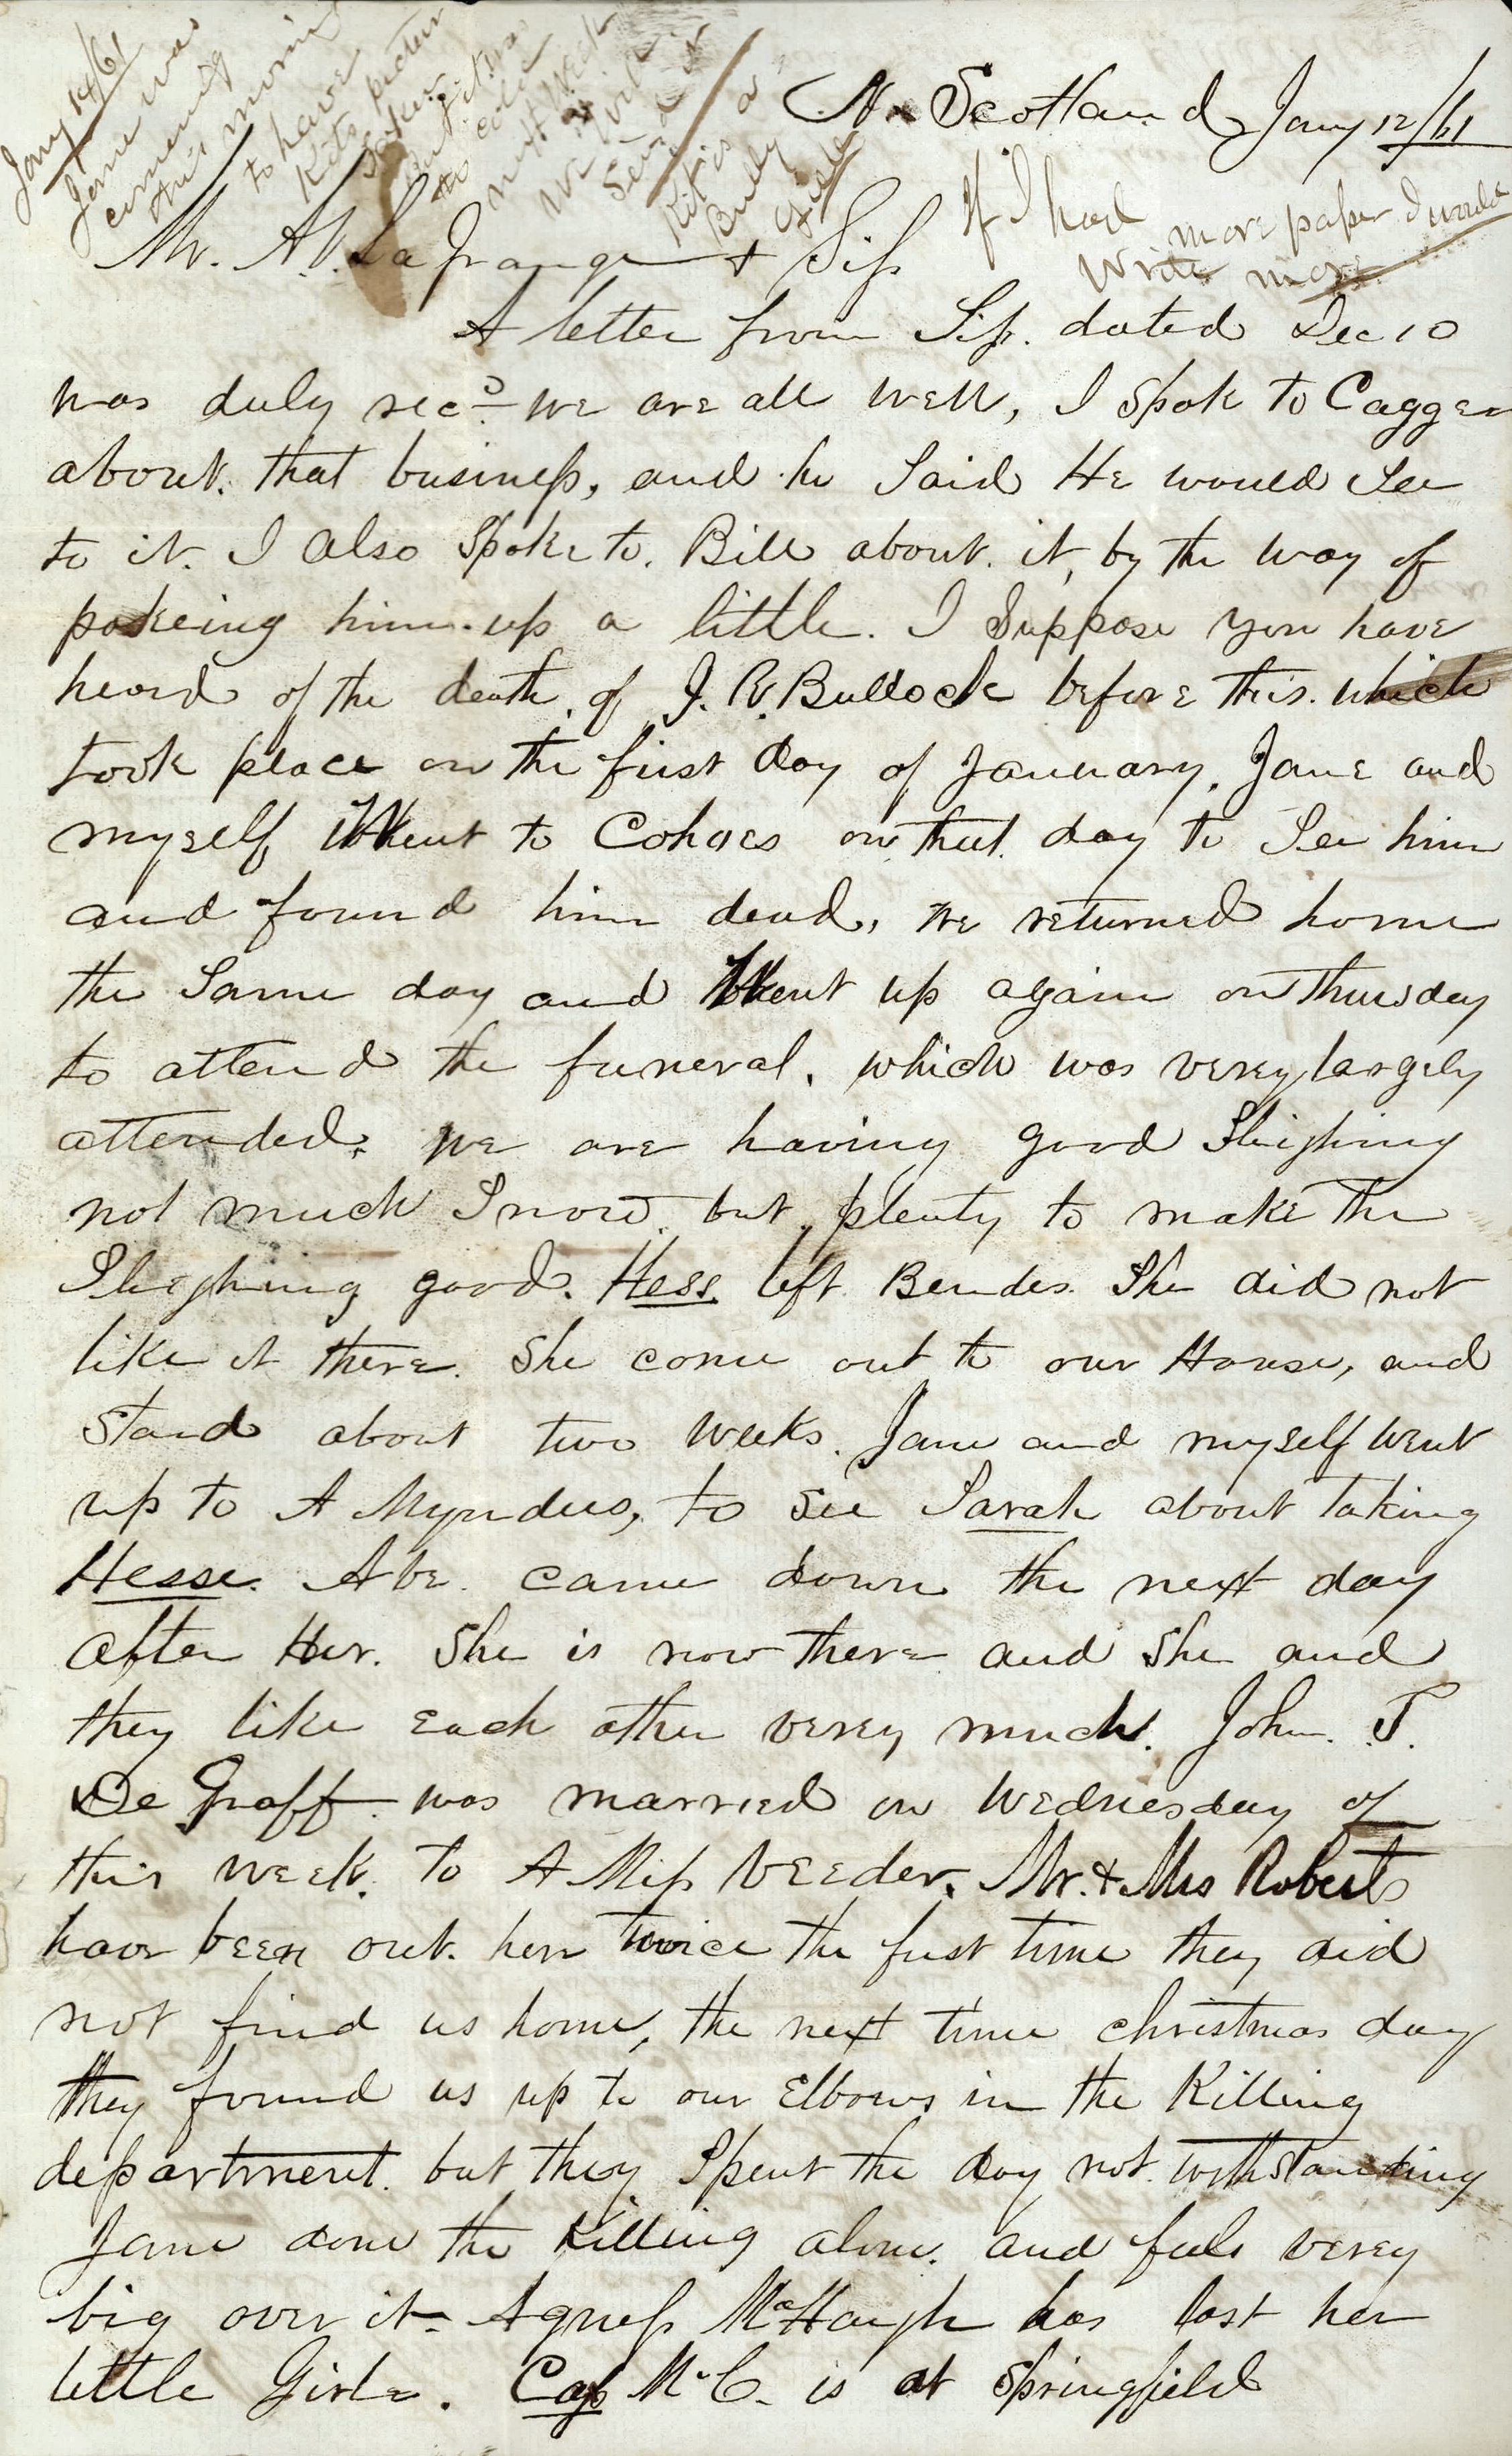 Jany 14/61
Jane was
comeing
this morning
to have
Kits picture
taken
but it was
to cold
next week
we will
send it
Kit is a
Bully
Girl
N. Scotland Jany 12/61
If I had
more paper I would
write more
Mr. A. LaGrange & Sis
A letter from Sis. dated Dec 10
was duly recd we are all well, I Spok to Cagger
about. that business, and he Said He would See
to it. I also Spoke to. Bill about. it, by the way of
pokeing him up a little. I Suppose you have
heard of the death of J. R. Bullock before this. which
took place on the first day of January. Jane and
myself Went to Cohoes on that day to See him
and found him dead, we returned home
the Same day and Went up again on Thursday
to attend the funeral. which was verey largely
attended. we are having good Sleighing
not much Snow. but plenty to make the
Sleighing good. Hess left Benders. She did not
like it there. She come out to our House, and
staid about two weeks. Jane and myself went
up to A Mynders, to see Sarah about taking
Hesse. Abe. came down the next day
after Her. She is now there and She and
they like each other verey much. John. T.
De Graff was married on Wednesday of
this week. to A Miss Veeder. Mr. & Mrs Roberts
have been out. here twice the first time they did
not find us home, the next time christmas day
they found us up to our Elbows in the Killing
department. but they Spent the day not withstanding
Jane done the Killing alone. and feels verey
big over it. Agness McHaugh has lost her
little Girle. Cap Mc C. is at Springfield